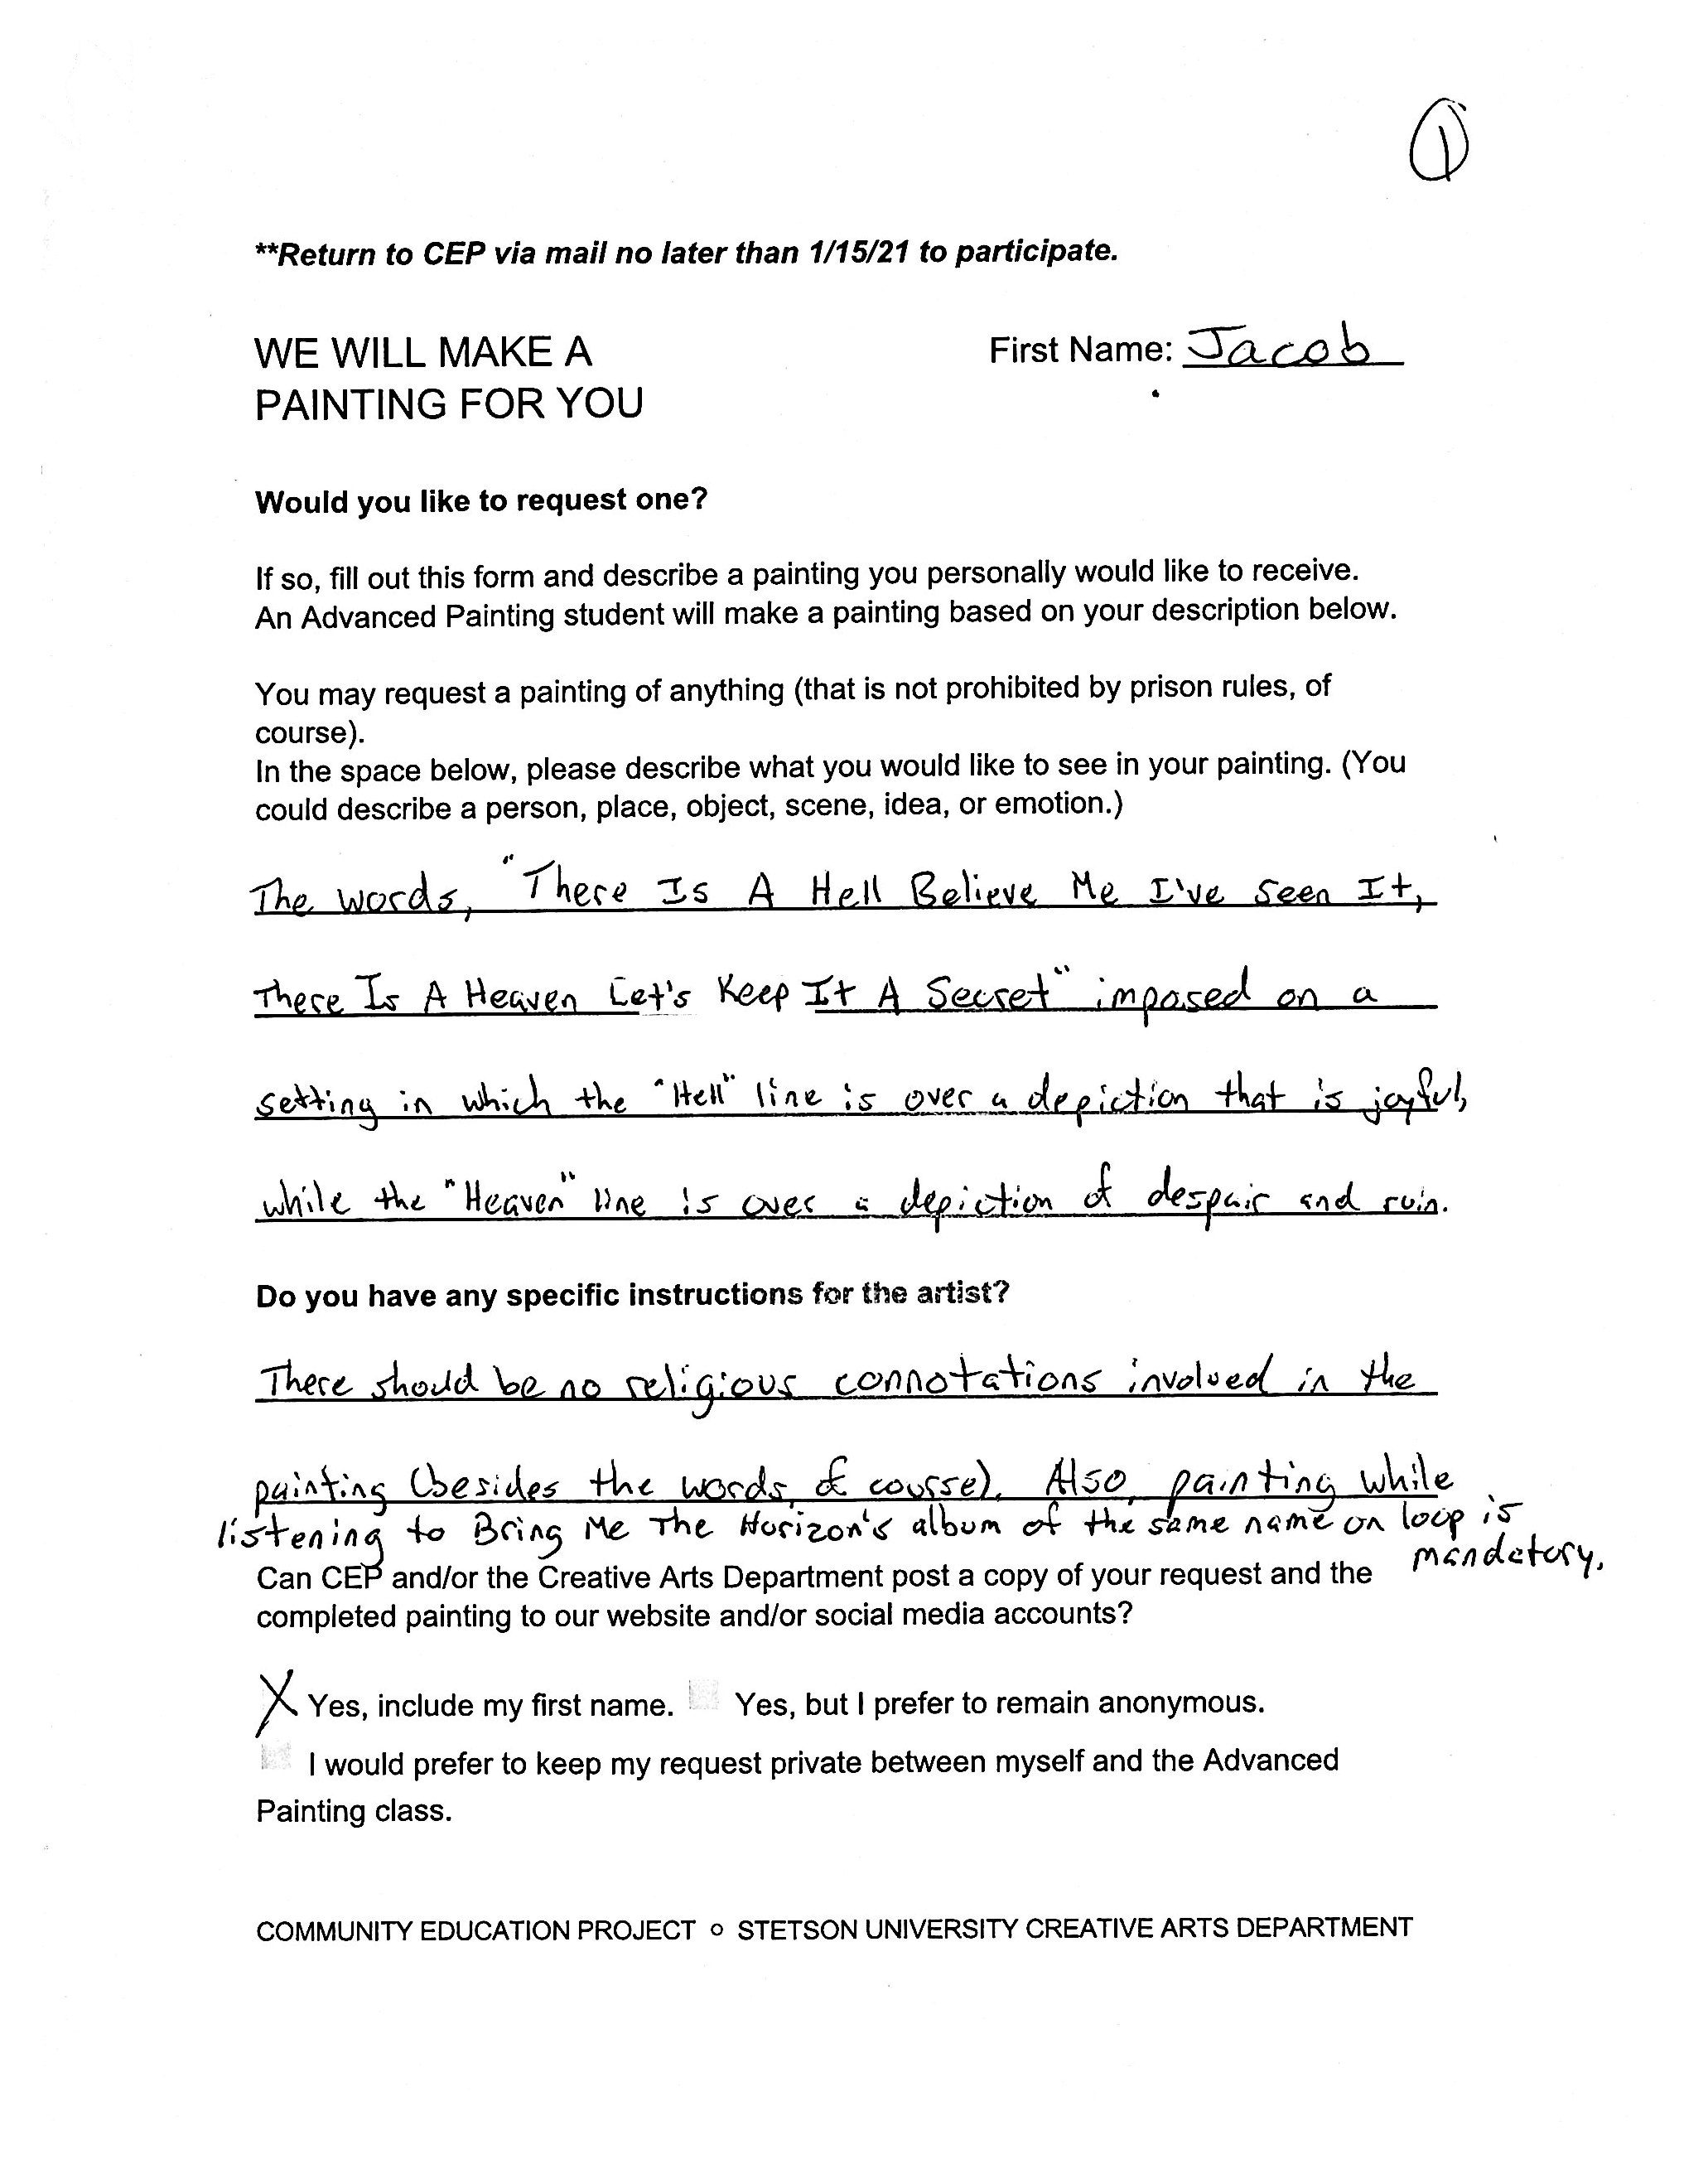 1
**Return to CEP via mail no later than 1/15/21 to participate.
WE WILL MAKE A
PAINTING FOR YOU
First Name: Jacob
Would you like to request one?
If so, fill out this form and describe a painting you personally would like to receive.
An Advanced Painting student will make a painting based on your description below.
You may request a painting of anything (that is not prohibited by prison rules, of
course).
In the space below, please describe what you would like to see in your painting. (You
could describe a person, place, object, scene, idea, or emotion.)
The words, "There Is A Hell Believe Me I've Seen It,
There Is A Heaven Let's Keep It A Secret" imposed on a
setting in which the "Hell" line is over a depiction that is joyful,
while the "Heaven" line is over a depiction of despair and ruin.
Do you have any specific instructions for the artist?
There should be no religious connotations involved in the
painting (besides the words, of course). Also, painting while
listening to Bring Me The Horizon's album of the same name on loop is
mandatory.
Can CEP and/or the Creative Arts Department post a copy of your request and the
completed painting to our website and/or social media accounts?
X Yes, include my first name. Yes, but I prefer to remain anonymous.
I would prefer to keep my request private between myself and the Advanced
Painting class.
COMMUNITY EDUCATION PROJECT o STETSON UNIVERSITY CREATIVE ARTS DEPARTMENT